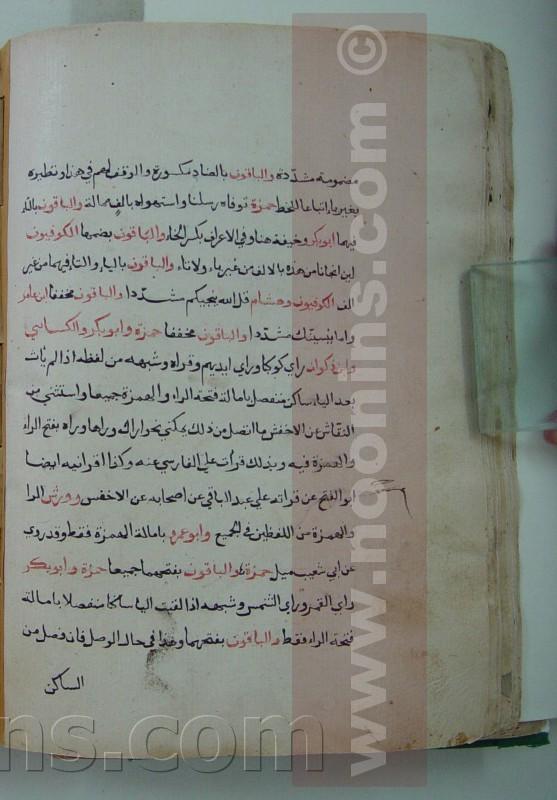 مضمومة مشددة والباقون بالضاد مكسورة والوقف لهم في هذا ونظيره
بغير ياء اتباعا للخط حمزة توفاه رسلنا واستهواه بالف ممالة والباقون بالتاء
فيهما ابو بكر وخيفة هنا وفي الاعراف بكسر الخاء والباقون بضمها الكوفيون
لين انجانا من هذه بالالف من غير ياء ولا تاء والباقون بالياء والتا فيهما من غير
الف الكوفيون وهشام قل الله ينجيكم مشددا والباقون مخففا ابن عامر
واما ينسينك مشددا والباقون مخففا حمزة وابو بكر والكساسي
وابن ذكوان راي كوكبا وراي ايديهم وقراه وشبهه من لفظه اذا لم يات
بعد الياء ساكن منفصل بامالة فتحة الراء والهمزة جميعا واستثني من
النقاش عن الاخفش ما اتصل من ذلك بمكني نحو اراك وراها وراه بفتح الراء
والهمزة فيه وبذلك قرات على الفارسي عنه وكذا اقرانيه ايضا
ابو الفتح عن قراته على عبد الباقي عن اصحابه عن الاخفش وورش الرا
والهمزة من اللفظين في الجميع وابو عمرو بامالة الهمزة فقط وقد روي
عن ابي شعيب ميل حمزة والباقون بفتحهما جميعا حمزة وابو بكر
راي القمر وراي الشمس وشبهه اذا لقيت اليا ساكنا منفصلا بامالة
فتحة الراء فقط والباقون بفتحهما وهذا في حال الوصل فان فصل من
الساكن
www.noonins.com ©
ns.com